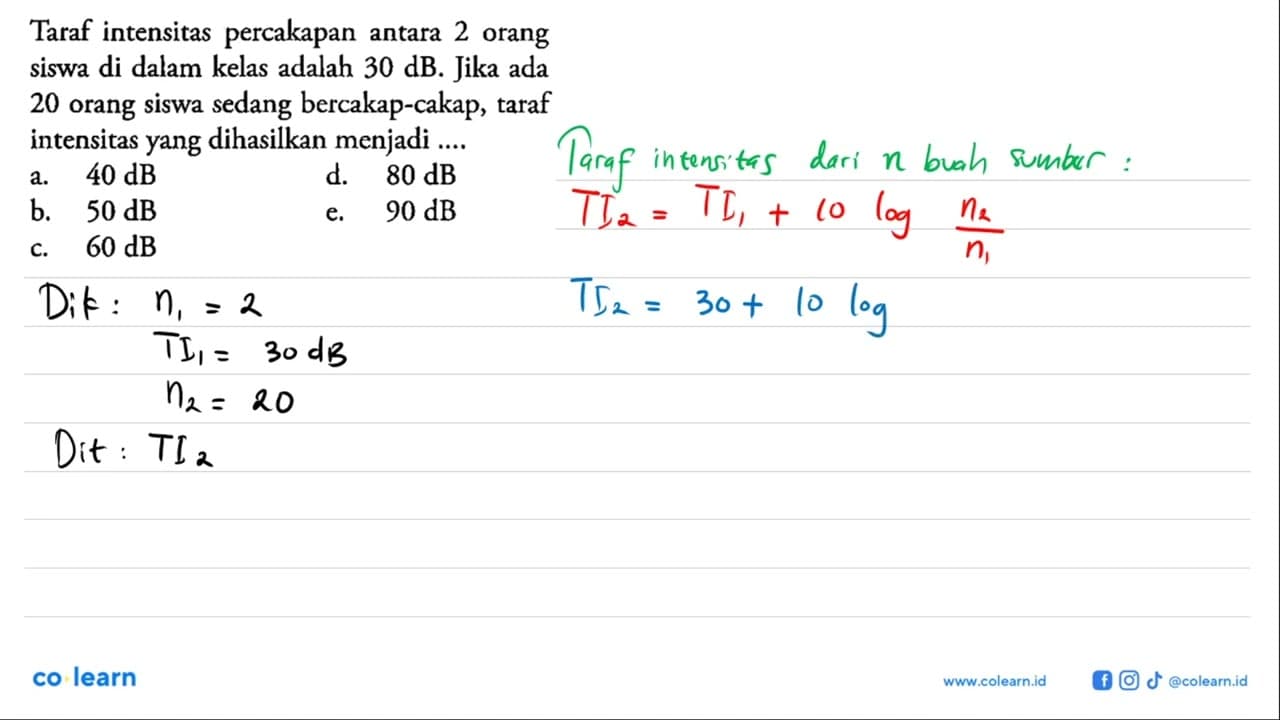 Taraf intensitas percakapan antara 2 orang
siswa di dalam kelas adalah 30 dB. Jika ada
20 orang siswa sedang bercakap-cakap, taraf
intensitas yang dihasilkan menjadi ....
a. 40 dB d. 80 dB
b. 50 dB e. 90 dB
c. 60 dB
Dik : n₁ = 2
TI₁ = 30 dB
n₂ = 20
Dit : TI₂
Taraf intensitas dari n buah sumber :
TI₂ = TI₁ + 10 log n₂/n₁
TI₂ = 30 + 10 log
co learn
www.colearn.id @colearn.id